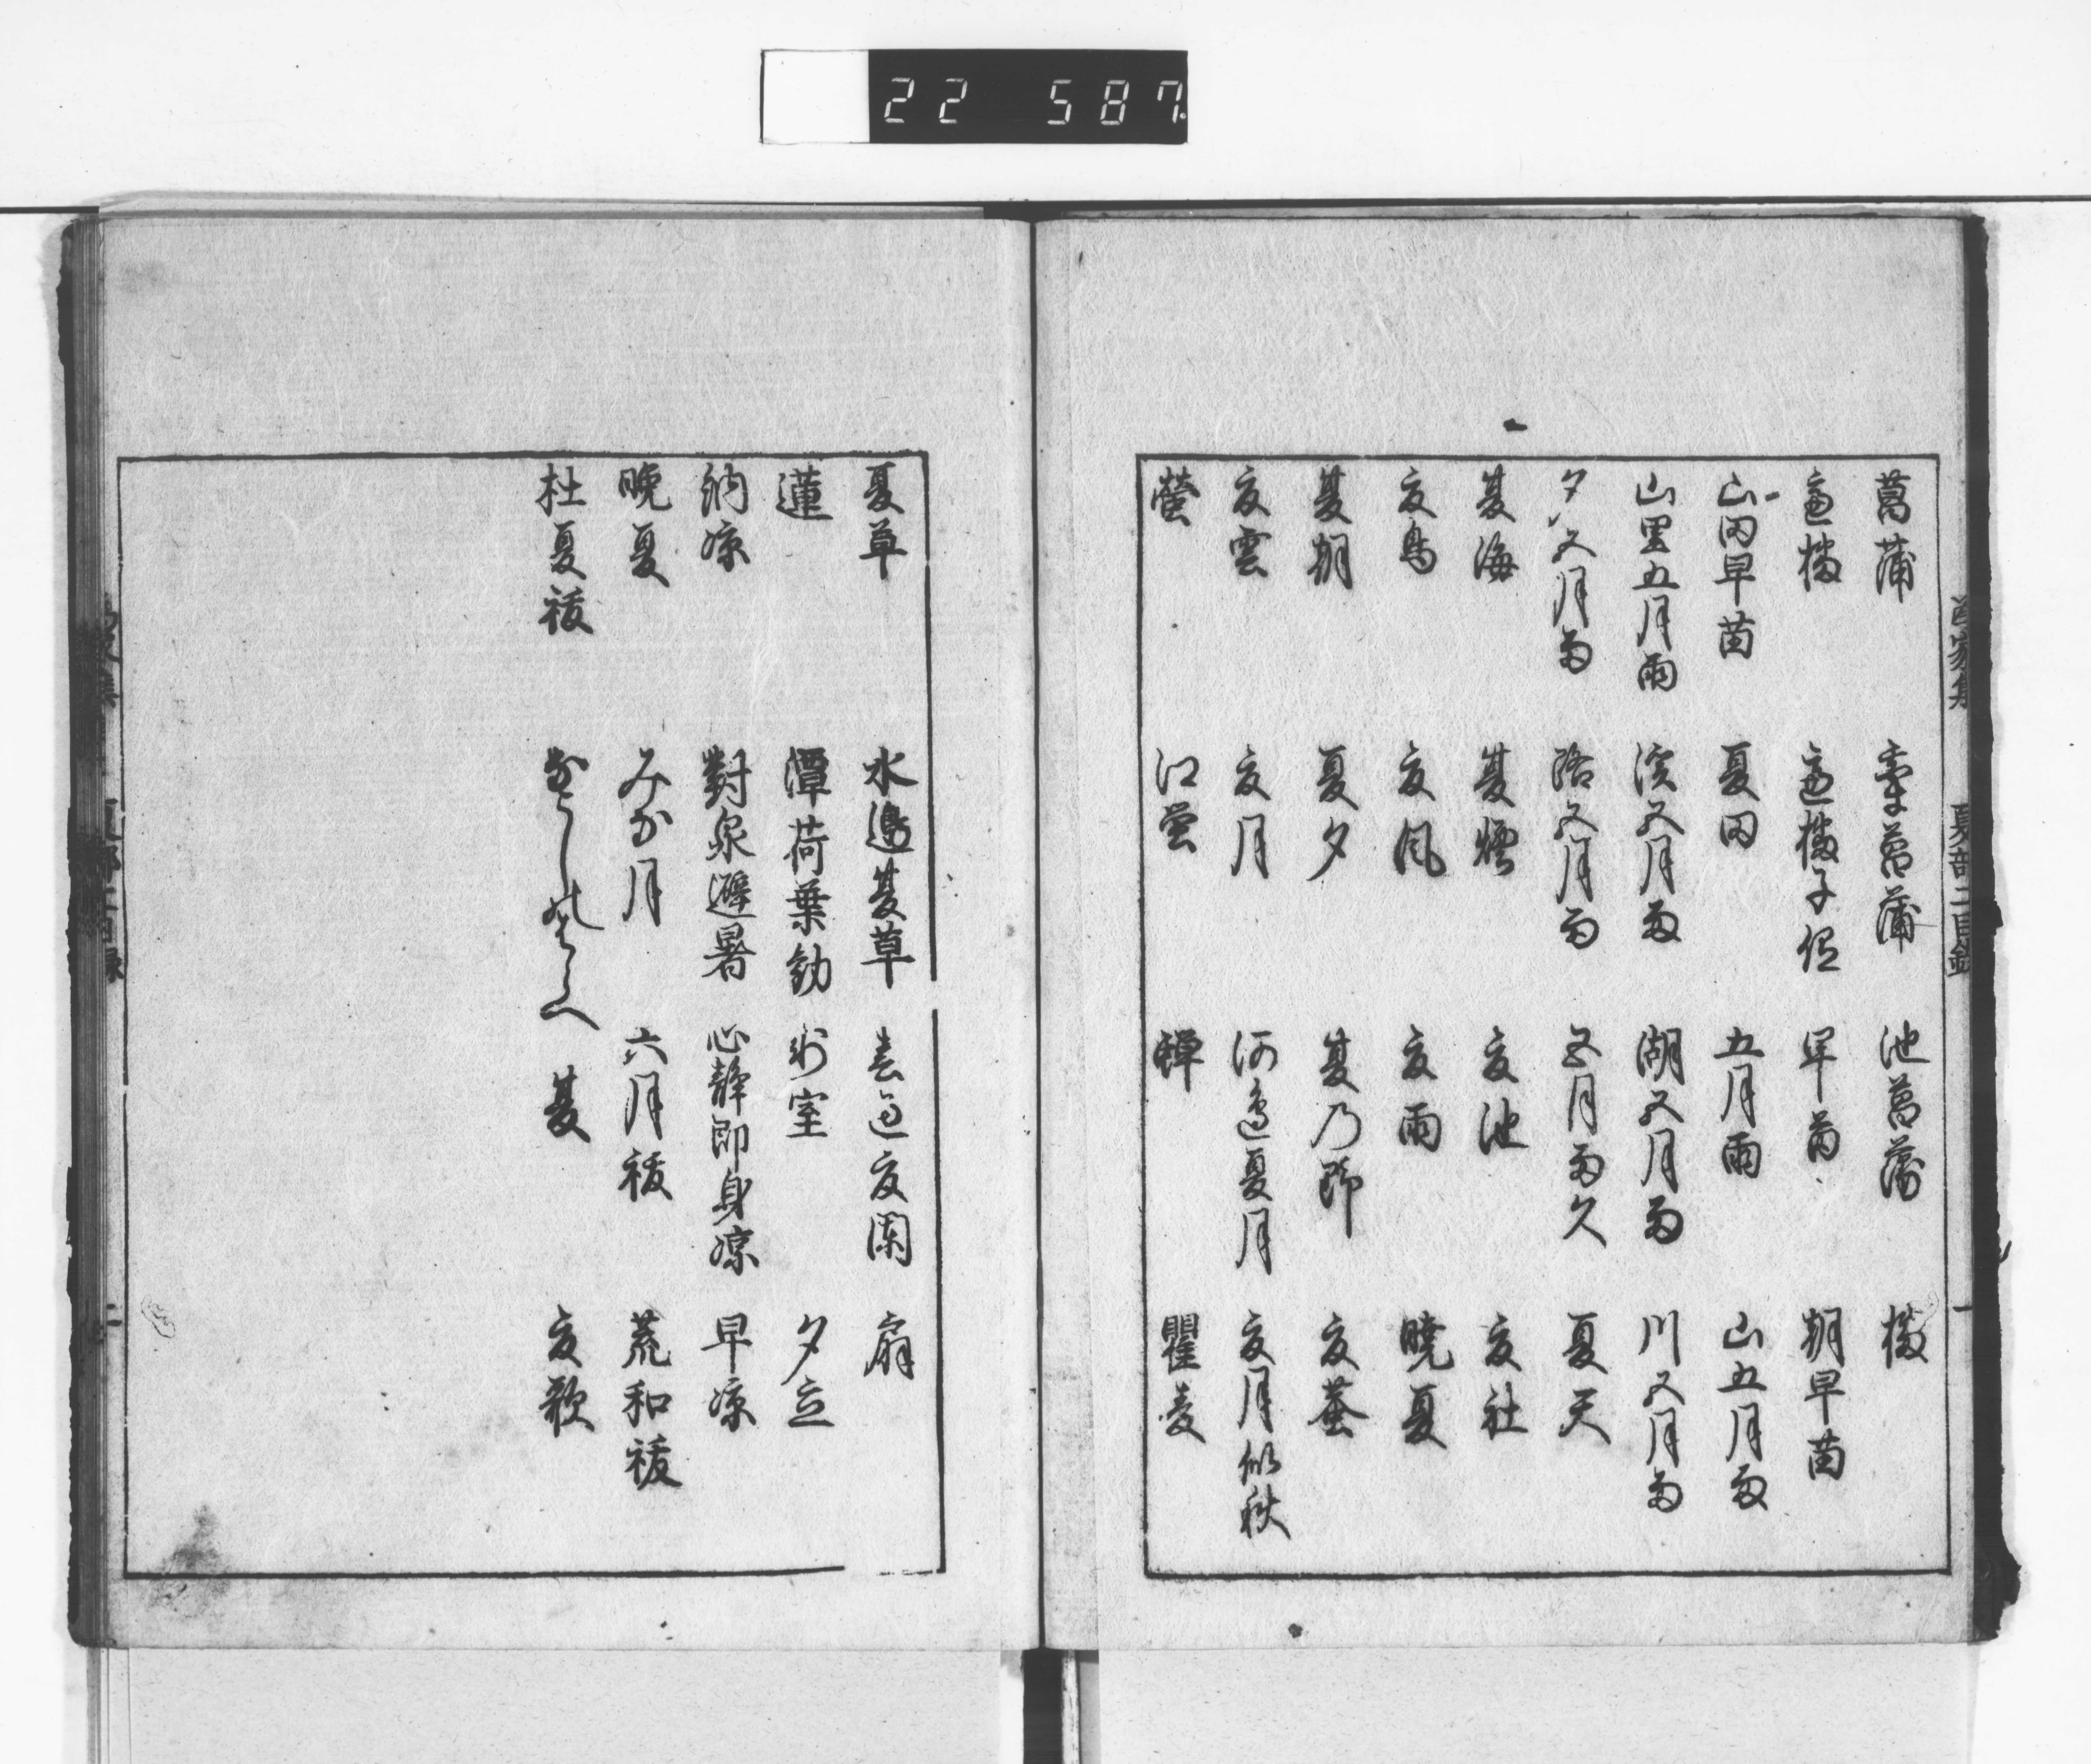 22 587
菖蒲 季菖蒲 池菖蒲 橘
盧橘 盧橘子低 早苗 朝早苗
山田早苗 夏田 五月雨 山五月雨
山里五月雨 渓五月雨 湖五月雨 川五月雨
夕五月雨 路五月雨 五月雨久 夏天
夏海 夏煙 夏池 夏社
夏鳥 夏風 夏雨 暁夏
夏朝 夏夕 夏乃野 夏蚕
夏雲 夏月 河辺夏月 夏月似秋
螢 江螢 蝉 瞿麦
夏部二目録
夏草 水邊夏草 夏闌 扇
蓮 潭荷葉動 氷室 夕立
納凉 對泉避暑 心静即身凉 早凉
晩夏 みな月 六月祓 荒和祓
杜夏祓 夏 夏歌